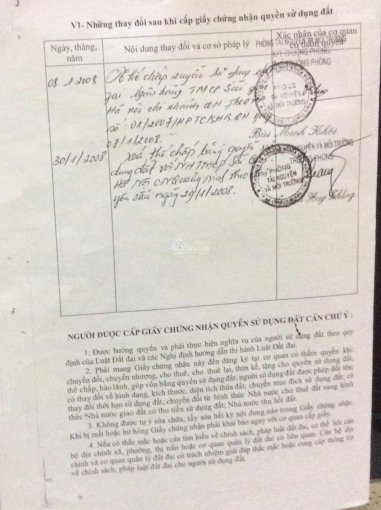 VI- Những thay đổi sau khi cấp giấy chứng nhận quyền sử dụng đất
Ngày, tháng, năm
Nội dung thay đổi và cơ sở pháp lý
Xác nhận của cơ quan có thẩm quyền
08.1.2008
Thế chấp quyền sử dụng
tại Ngân hàng TMCP
Hà nội chi nhánh
số 01/2007/HĐTC
08/1/2008.
30/1/2008
Xoá thế chấp bằng quyền
dụng đất với NHTMCP
HÀ NỘI CN Quang Minh theo
yêu cầu ngày 29/1/2008.
PHÒNG TÀI NGUYÊN VÀ MÔI TRƯỜNG
NGƯỜI ĐƯỢC CẤP GIẤY CHỨNG NHẬN QUYỀN SỬ DỤNG ĐẤT CẦN CHÚ Ý:
1. Được hưởng quyền và phải thực hiện nghĩa vụ của người sử dụng đất theo quy
định của Luật Đất đai và các Nghị định hướng dẫn thi hành Luật Đất đai.
2. Phải mang Giấy chứng nhận này đến đăng ký tại cơ quan có thẩm quyền khi:
chuyển đổi, chuyển nhượng, cho thuê, cho thuê lại, thừa kế, tặng cho quyền sử dụng đất,
thế chấp, bảo lãnh, góp vốn bằng quyền sử dụng đất; người sử dụng đất được phép đổi tên;
có thay đổi về hình dạng, kích thước, diện tích thửa đất; chuyển mục đích sử dụng đất; có
thay đổi thời hạn sử dụng đất; chuyển đổi từ hình thức Nhà nước cho thuê đất sang hình
thức Nhà nước giao đất có thu tiền sử dụng đất; Nhà nước thu hồi đất.
3. Không được tự ý sửa chữa, tẩy xóa bất kỳ nội dung nào trong Giấy chứng nhận.
Khi bị mất hoặc hư hỏng Giấy chứng nhận phải khai báo ngay với cơ quan cấp giấy.
4. Nếu có thắc mắc hoặc cần tìm hiểu về chính sách, pháp luật đất đai, có thể hỏi cán
bộ địa chính xã, phường, thị trấn hoặc cơ quan quản lý đất đai có liên quan. Cán bộ địa
chính và cơ quan quản lý đất đai có trách nhiệm giải đáp thắc mắc hoặc cung cấp thông tin
về chính sách, pháp luật đất đai cho người sử dụng đất.